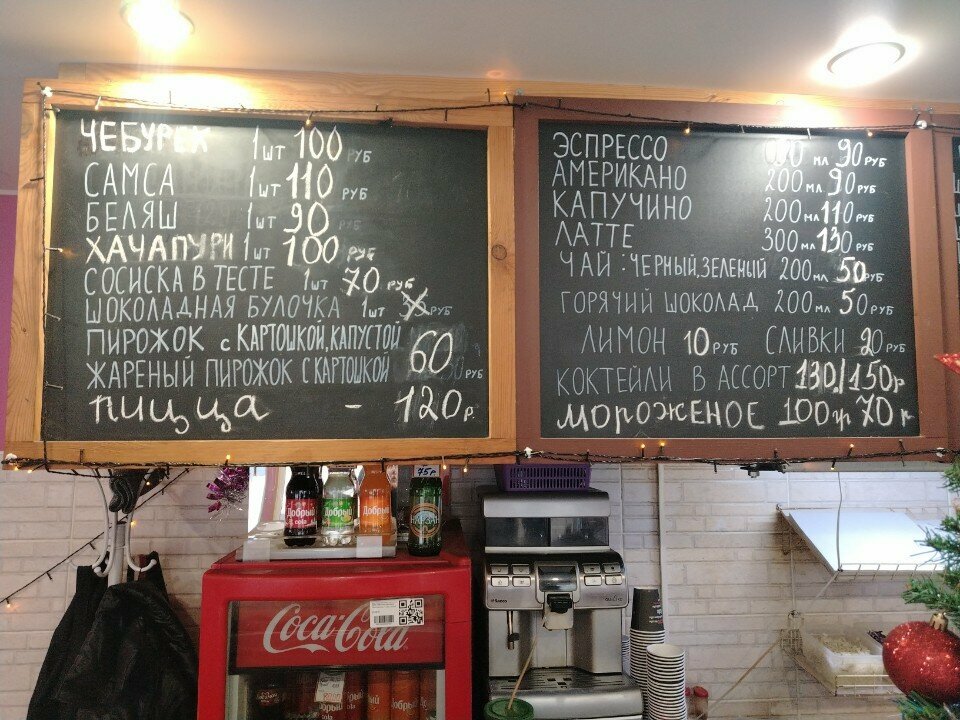 ЧЕБУРЕК 1шт 100 РУБ
САМСА 1шт 110 РУБ
БЕЛЯШ 1шт 90
ХАЧАПУРИ 1шт 100 РУБ
СОСИСКА В ТЕСТЕ 1шт 70 РУБ
ШОКОЛАДНАЯ БУЛОЧКА 1шт РУБ
ПИРОЖОК с КАРТОШКОЙ, КАПУСТОЙ
ЖАРЕНЫЙ ПИРОЖОК С КАРТОШКОЙ 60 РУБ
пицца - 120р.
ЭСПРЕССО МЛ 90 РУБ
АМЕРИКАНО 200 МЛ 90 РУБ
КАПУЧИНО 200 МЛ 110 РУБ
ЛАТТЕ 300 МЛ 130 РУБ
ЧАЙ: ЧЕРНЫЙ, ЗЕЛЕНЫЙ 200 МЛ 50 РУБ
ГОРЯЧИЙ ШОКОЛАД 200 МЛ 50 РУБ
ЛИМОН 10 РУБ СЛИВКИ 20 РУБ
КОКТЕЙЛИ В АССОРТ 130/150р
МОРОЖЕНОЕ 100 гр 70 г
75р
Добрый cola
Добрый
Добрый
Coca-Cola
Saeco